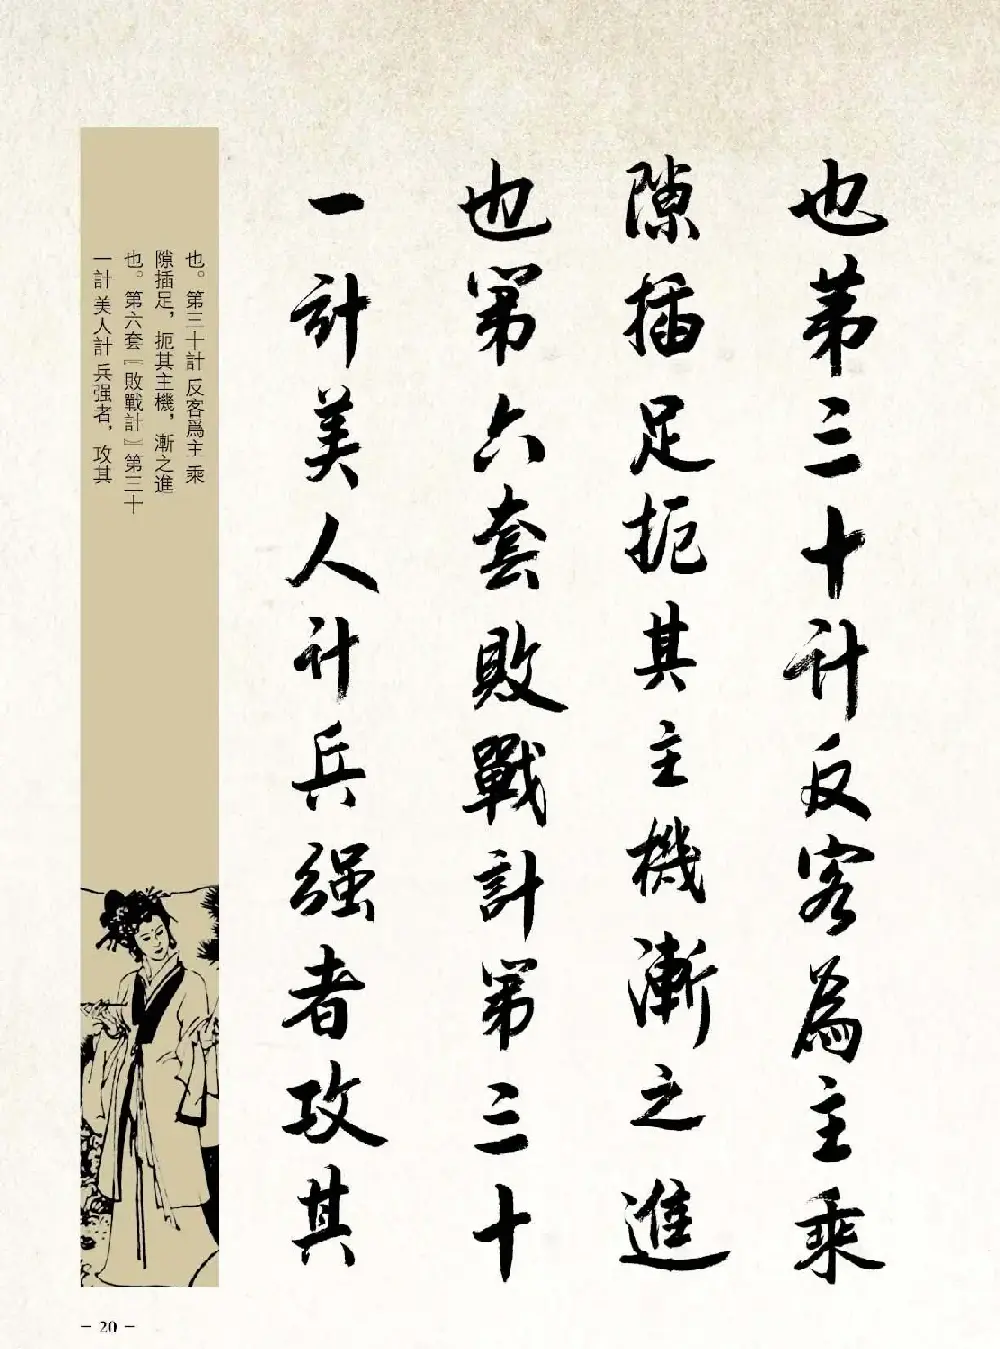 也第三十计反客為主乘
隙插足扼其主機漸之進
也第六套敗戰計第三十
一計美人计兵强者攻其
也。第三十計 反客爲主 乘
隙插足，扼其主機，漸之進
也。第六套『敗戰計』第三十
一計 美人計 兵强者，攻其
- 20 -